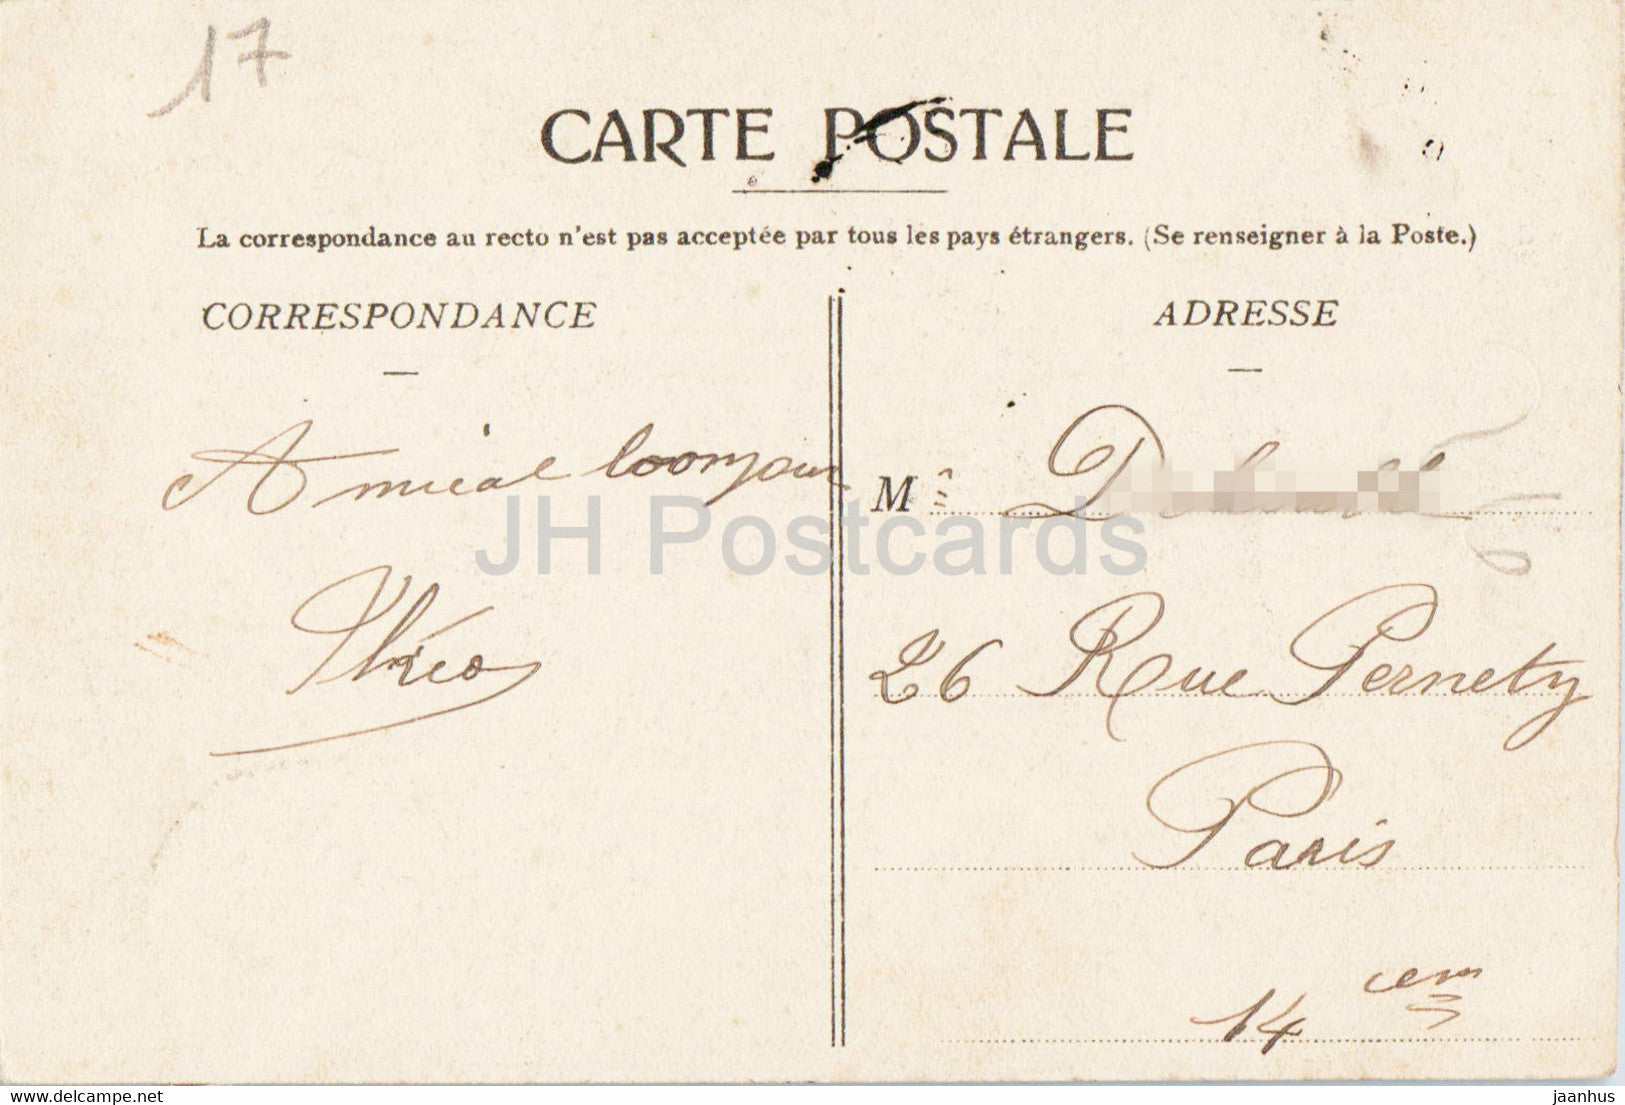 17
CARTE POSTALE
La correspondance au recto n'est pas acceptée par tous les pays étrangers. (Se renseigner à la Poste.)
CORRESPONDANCE
Amical bonjour
Théo
ADRESSE
M
26 Rue Pernety
Paris
14 em
JH Postcards
www.delcampe.net
jaanhus